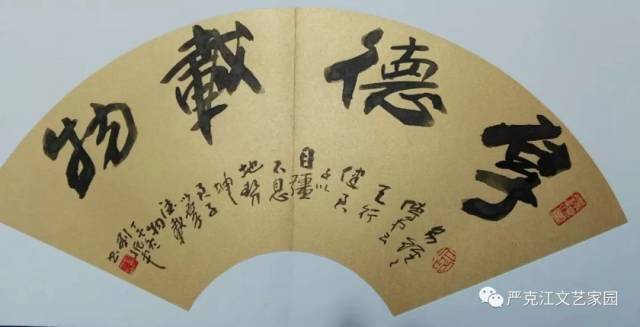 厚德載物
易經
天行
健君
子以
自彊
不息
地势
坤
君子
以厚
德載
物
严克江文艺家园